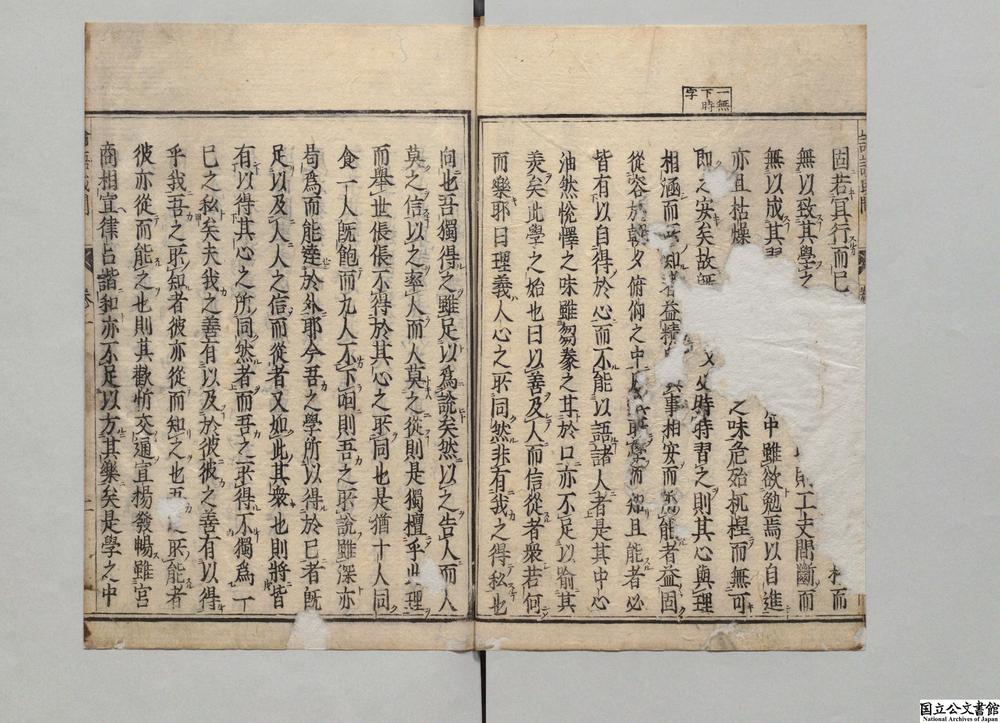 一無
下時
字
固若冥行而已 而
無以致其學之 則工夫間斷而
無以成其習 中雖欲勉焉以自進
亦且枯燥 之味危殆杌隉而無可
即之安矣故 又必時時習之則其心與理
相涵而所知者益精 與事相安而所能者益固
從容於朝夕俯仰之中 其所學而知且能者必
皆有以自得於心而不能以語諸人者是其中心
油然悅懌之味雖芻豢之甘於口亦不足以喻其
美矣此學之始也曰以善及人而信從者衆若何
而樂耶曰理義人心之所同然非有我之得私也
向也吾獨得之雖足以爲說矣然以之告人而人
莫之信以之率人而人莫之從則是獨擅乎此理
而舉世倀倀不得於其心之所同也是猶十人同
食一人既飽而九人不下咽則吾之所說雖深亦
曷爲而能達於外耶今吾之學所以得於己者既
足以及人人之信而從者又如此其衆也則將皆
有以得其心之所同然者而吾之所得不獨爲一
己之私矣夫我之善有以及於彼彼之善有以得
乎我吾之所知者彼亦從而知之也吾之所能者
彼亦從而能之也則其歡忻交通宣揚發暢雖宮
商相宣律呂諧和亦不足以方其樂矣是學之中
論語或問
卷一
国立公文書館
National Archives of Japan